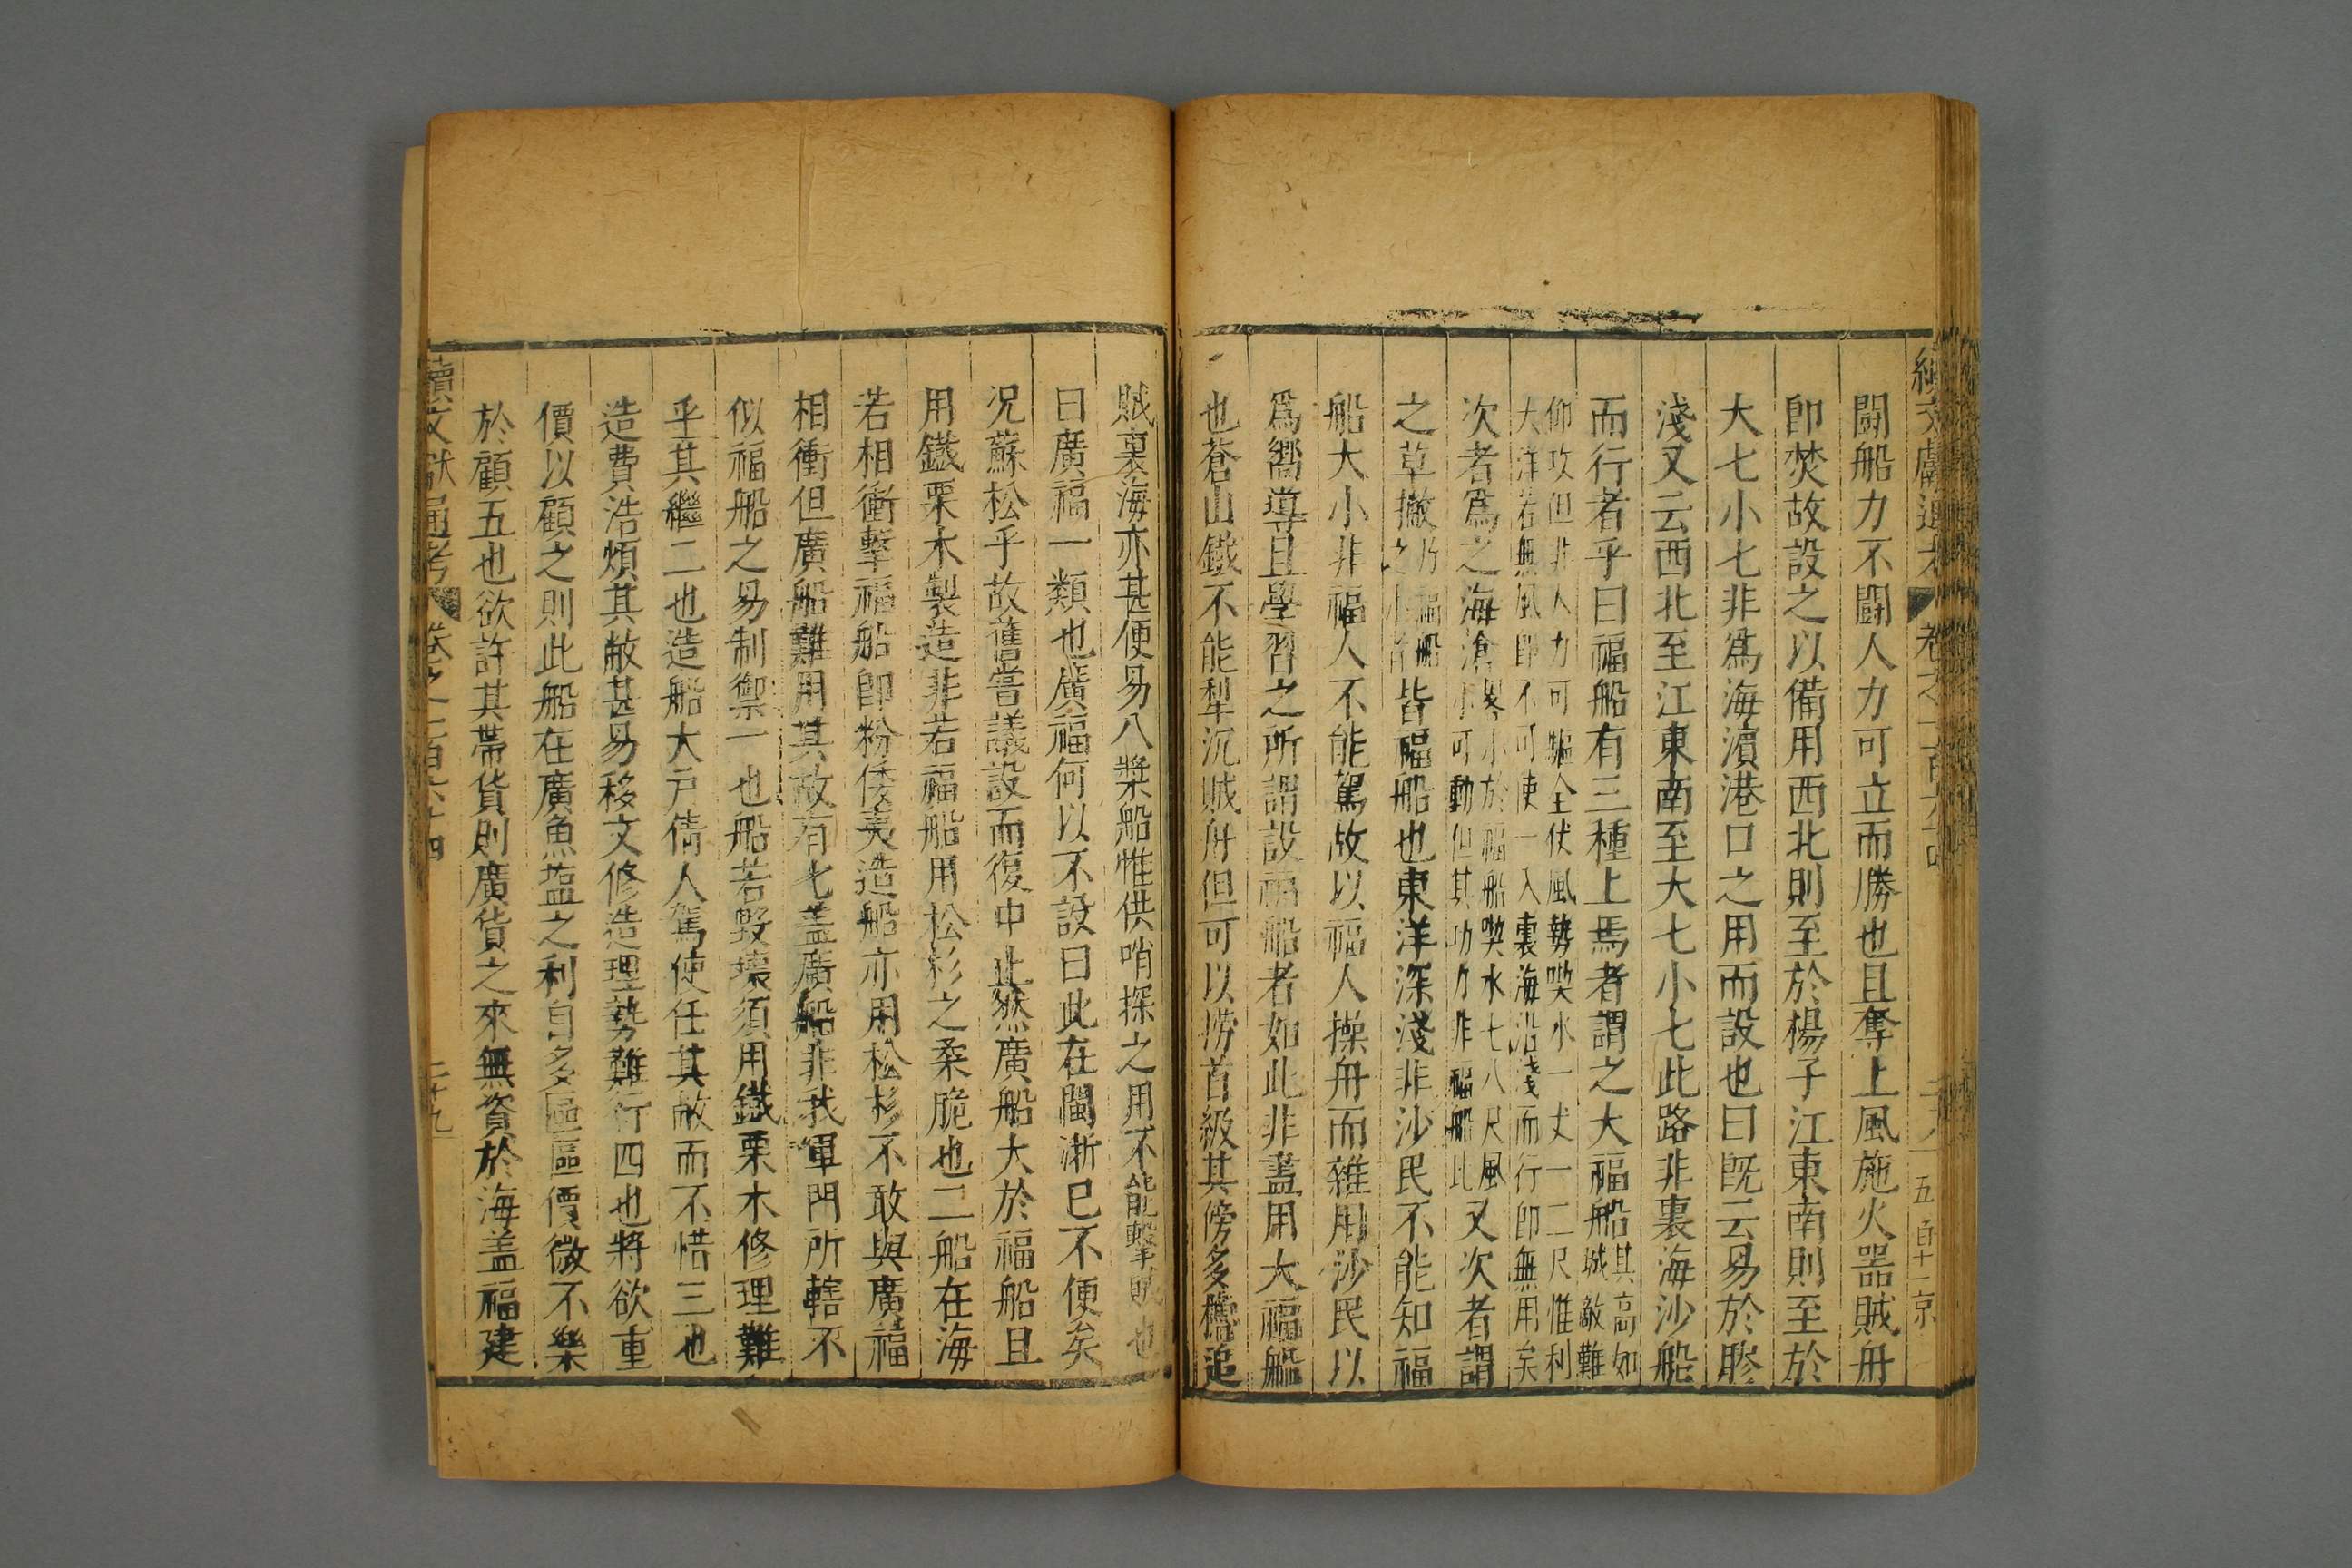 鬭船力不鬭人力可立而勝也且奪上風施火噐賊舟
卽焚故設之以備用西北則至於楊子江東南則至於
大七小七非爲海濵港口之用而設也曰旣云易於膠
淺又云西北至江東南至大七小七此路非裏海沙船
而行者乎曰福船有三種上焉者謂之大福船
其高如
城敵難
仰攻但非人力可驅全伏風勢喫水一丈一二尺惟利
大洋若無風即不可使一入裏海沿淺而行即無用矣
次者爲之海滄
畧小於福船喫水七八尺風
小可動但其功力非福船比
又次者謂
之草撇
乃福船
之小者
皆福船也東洋深淺非沙民不能知福
船大小非福人不能駕故以福人操舟而雜用沙民以
爲嚮導且學習之所謂設福船者如此非盡用大福艦
也蒼山鐵不能犁沉賊舟但可以撈首級其傍多櫓追
賊裏海亦甚便易八槳船惟供哨探之用不能擊賊也
曰廣福一類也廣福何以不設曰此在閩淅已不便矣
况蘇松乎故舊嘗議設而復中止然廣船大於福船且
用鐡栗木製造非若福船用松杉之柔脆也二船在海
若相衝擊福船卽粉倭夷造船亦用松杉不敢與廣福
相衝但廣船難用其故有七盖廣船非我軍門所轄不
似福船之易制禦一也船若毀壞須用鐡栗木修理難
乎其繼二也造船大戸倩人駕使任其敝而不惜三也
造費浩煩其敝甚易移文修造理勢難行四也將欲重
價以顧之則此船在廣魚塩之利自多區區價微不樂
於顧五也欲許其帶貨則廣貨之來無資於海盖福建
續文獻通考 卷之一百六十四 二十九